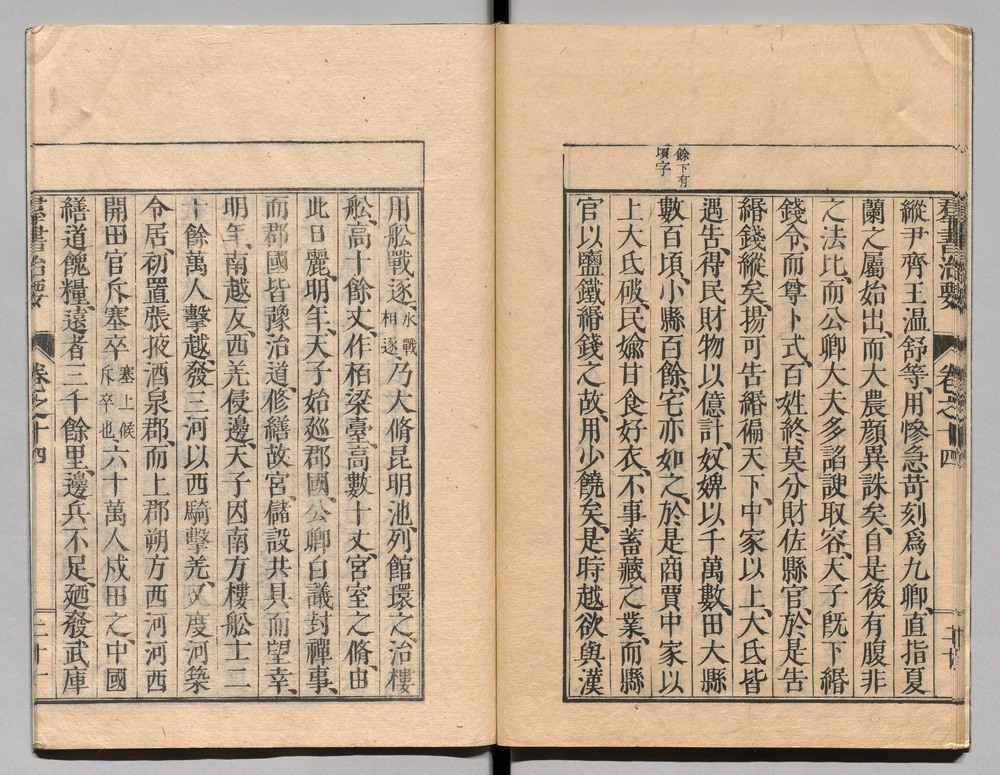 羣書治要 卷之十四
餘下有
頃字
縱尹齊王温舒等、用慘急苛刻爲九卿、直指夏
蘭之屬始出、而大農顔異誅矣、自是後有腹非
之法比、而公卿大夫多諂諛取容、天子旣下緡
錢令、而尊卜式、百姓終莫分財佐縣官、於是告
緡錢縱矣、揚可告緡徧天下、中家以上、大氐皆
遇告、得民財物以億計、奴婢以千萬數、田大縣
數百頃、小縣百餘、宅亦如之、於是商賈中家以
上大氐破、民媮甘食好衣、不事蓄藏之業、而縣
官以鹽鐵緡錢之故、用少饒矣、是時越欲與漢
用舩戰逐、水戰相逐、乃大脩昆明池、列館環之、治樓
舩、高十餘丈、作栢梁臺、高數十丈、宮室之脩、由
此日麗、明年、天子始廵郡國、公卿白議封禪事、
而郡國皆豫治道、修繕故宮、儲設共具而望幸、
明年、南越反、西羌侵邊、天子因南方樓舩士二
十餘萬人擊越、發三河以西騎擊羌、又度河築
令居、初置張掖酒泉郡、而上郡朔方西河河西
開田官斥塞卒塞上候斥卒也、六十萬人戍田之、中國
繕道餽糧、遠者三千餘里、邊兵不足、廼發武庫
羣書治要 卷之十四 二十一